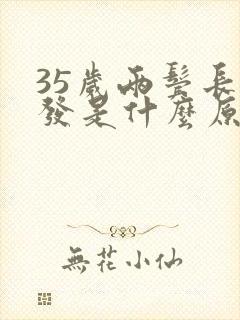 35歲兩鬢長
發是什麼原
無花小仙